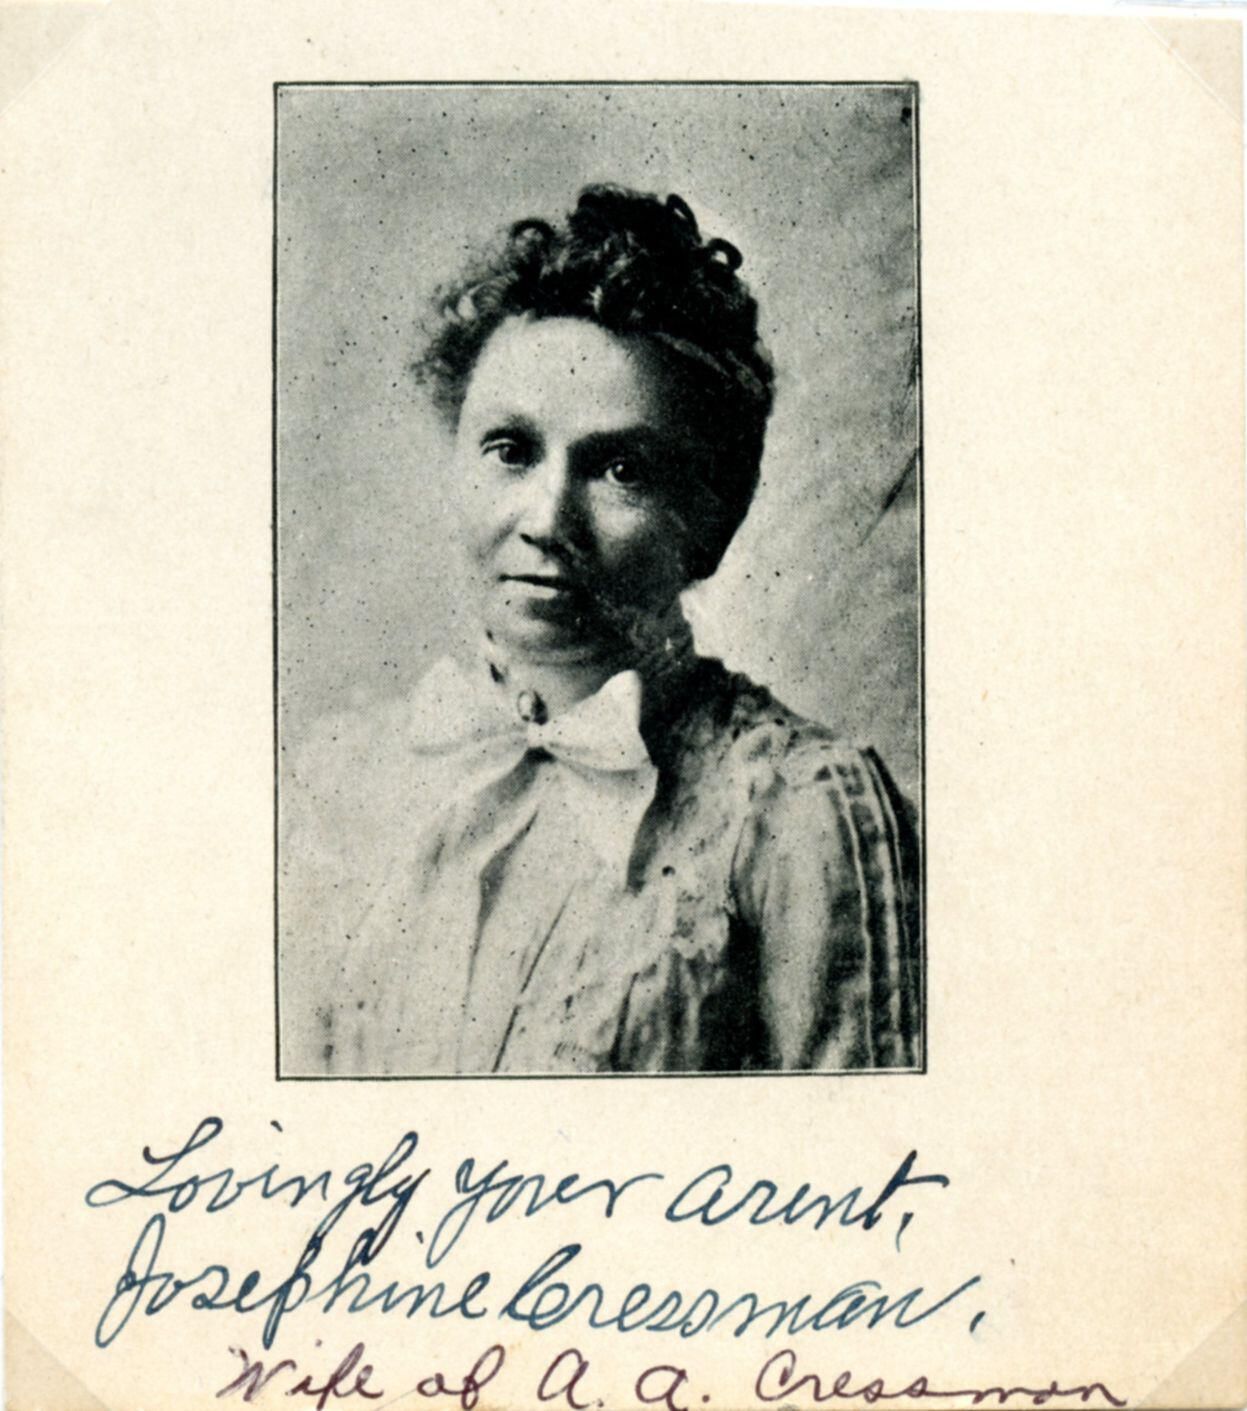 Lovingly your aunt,
Josephine Cressman.
Wife of A. A. Cressman